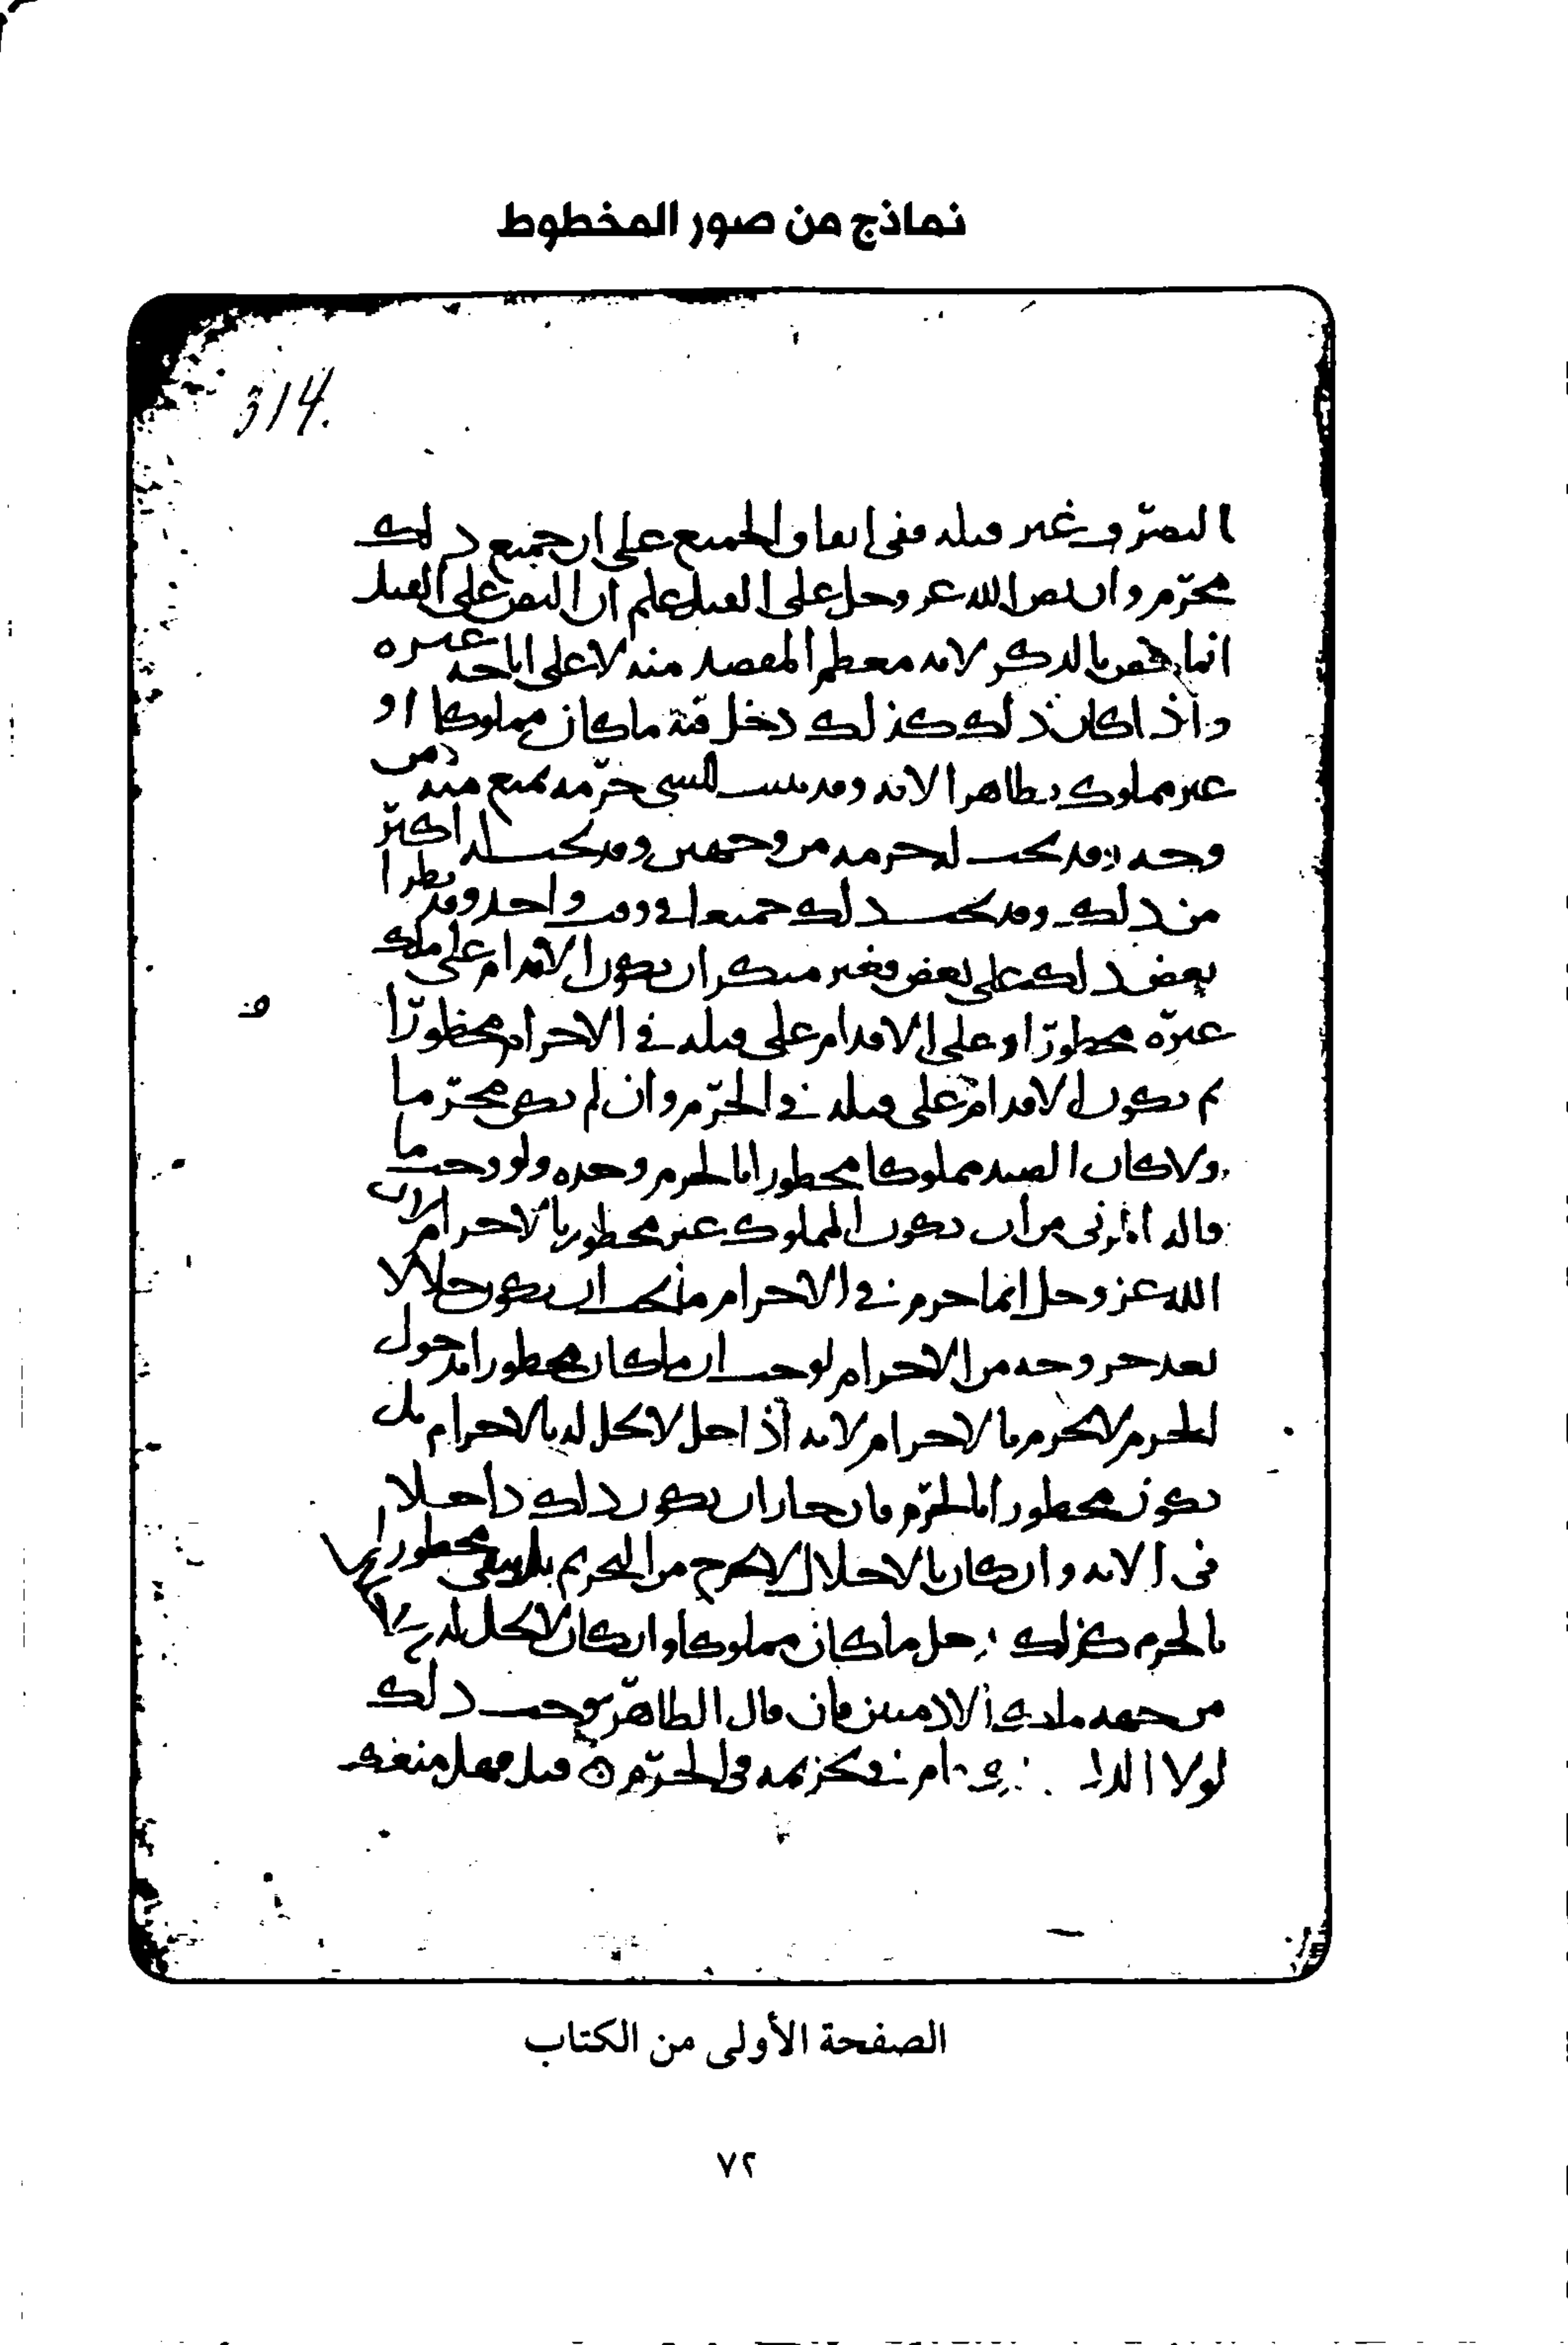 نماذج من صور المخطوط
314.
التصرف غير قتله ففي اتفاق الجميع على ان جميع ذلك
محرم وان نص الله عز وجل على القتل علم ان النص على القتل
انما خص بالذكر لانه معظم المقصد منه لا على اباحة غيره
واذا كان ذلك كذلك دخل فيه ما كان مملوكا او
غير مملوك بظاهر الاية وقد للشي حرمة يمنع منه من
وجه وقد يجب له حرمة من وجهين وقد يجب له اكثر
من ذلك وقد يجب ذلك جميعا في وقت واحد وقد يطرا
بعض ذلك على بعض فغير منكر ان يكون الاقدام على ملك
غيره محظورا وعلى الاقدام على قتله في الاحرام محظورا
ثم يكون الاقدام على قتله في الحرم وان لم يكن محرما
ولا كان الصيد مملوكا محظورا بالحرم وحده ولو وجب ما
قاله المزني من ان يكون المملوك غير محظور بالاحرام لان
الله عز وجل انما حرم في الاحرام ما يجب ان يكون حلالا
بعد خروجه من الاحرام لوجب ان ما كان محظورا بدخول
الحرم لا يحرم بالاحرام لانه اذا حل لا يحل له بالاحرام بل
يكون محظورا بالحرم فان جاز ان يكون ذلك داخلا
في الاية وان كان بالاحلال لا يخرج من التحريم بل يبقى محظورا
بالحرم كذلك دخل ما كان مملوكا وان كان لا يحل له
من جهة ملك الادميين فان قال الظاهر يوجب ذلك
لولا في تحريمه في الحرم قيل فهل منعك
الصفحة الأولى من الكتاب
٧٢